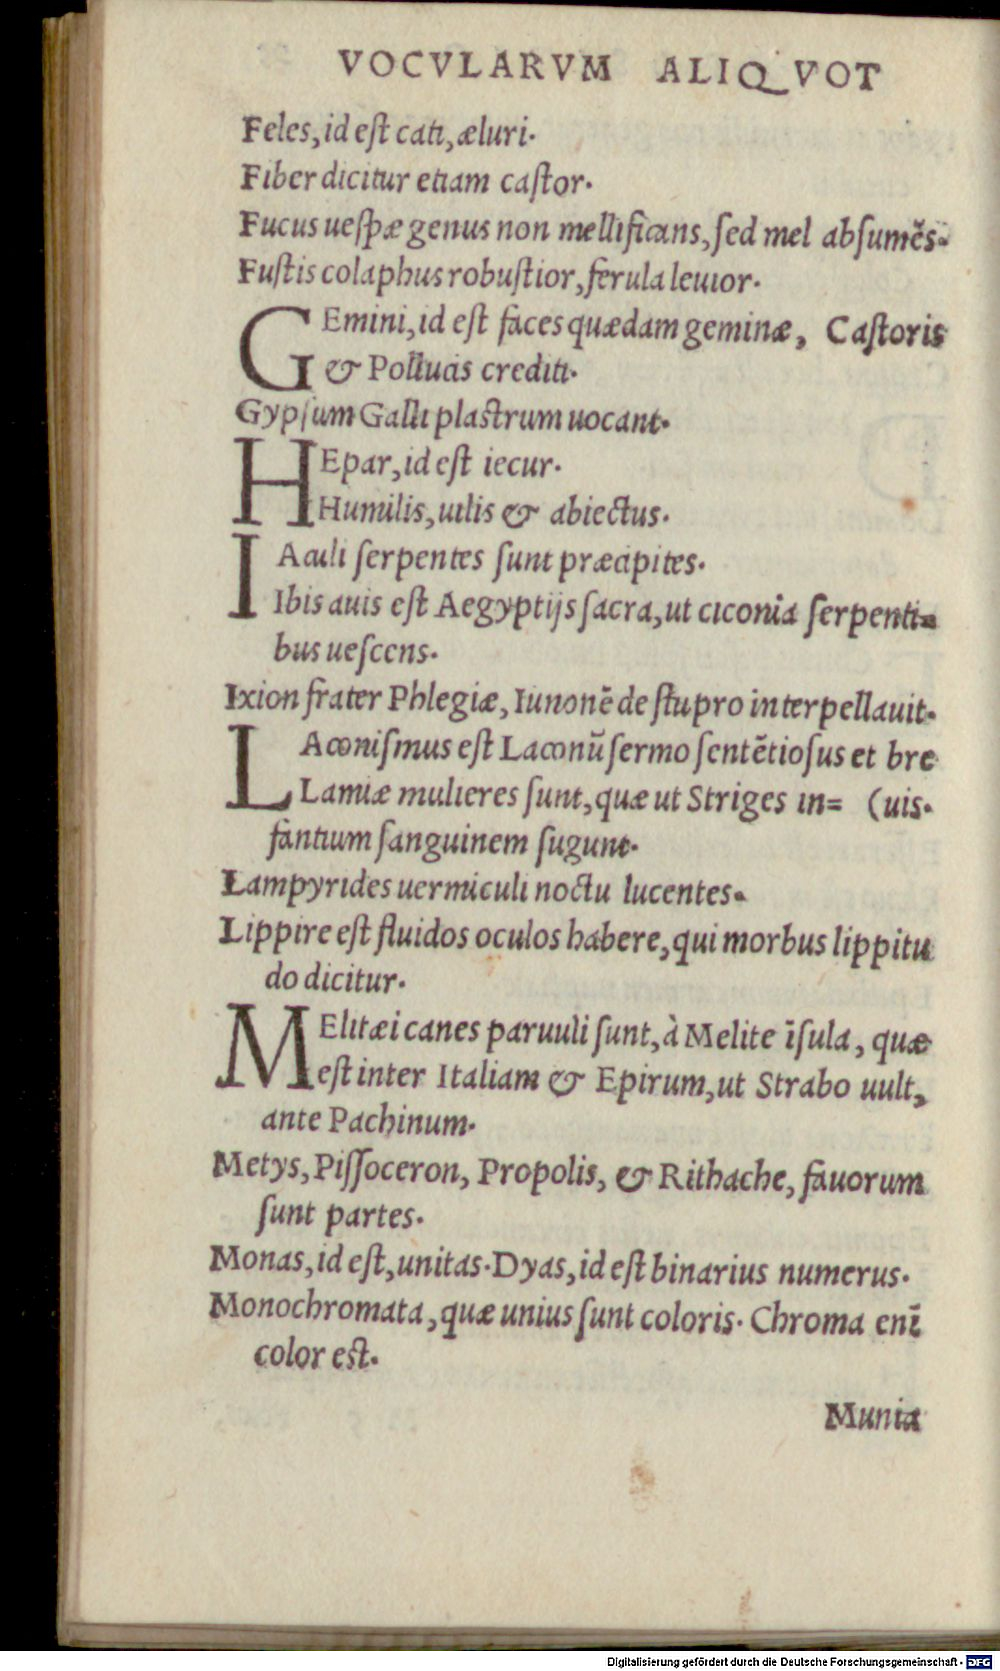 VOCVLARVM ALIQVOT
Feles, id eſt cati, æluri.
Fiber dicitur etiam caſtor.
Fucus ueſpæ genus non mellificans, ſed mel abſumẽs.
Fuſtis colaphus robuſtior, ferula leuior.
GEmini, id eſt faces quædam geminæ, Caſtoris
& Pollucis crediti.
Gypſum Galli plastrum uocant.
HEpar, id eſt iecur.
Humilis, uilis & abiectus.
IAculi ſerpentes ſunt præcipites.
Ibis auis eſt Aegyptijs ſacra, ut ciconia ſerpenti=
bus ueſcens.
Ixion frater Phlegiæ, Iunonẽ de ſtupro interpellauit.
LAconiſmus eſt Laconũ ſermo ſentẽtioſus et bre
Lamiæ mulieres ſunt, quæ ut Striges in= (uis.
fantium ſanguinem ſugunt.
Lampyrides uermiculi noctu lucentes.
Lippire eſt fluidos oculos habere, qui morbus lippitu
do dicitur.
MElitæi canes paruuli ſunt, à Melite ĩſula, quæ
eſt inter Italiam & Epirum, ut Strabo uult,
ante Pachinum.
Metys, Piſſoceron, Propolis, & Rithache, fauorum
ſunt partes.
Monas, id eſt, unitas. Dyas, id eſt binarius numerus.
Monochromata, quæ unius ſunt coloris. Chroma enĩ
color est.
Munia
Digitalisierung gefördert durch die Deutsche Forschungsgemeinschaft - DFG